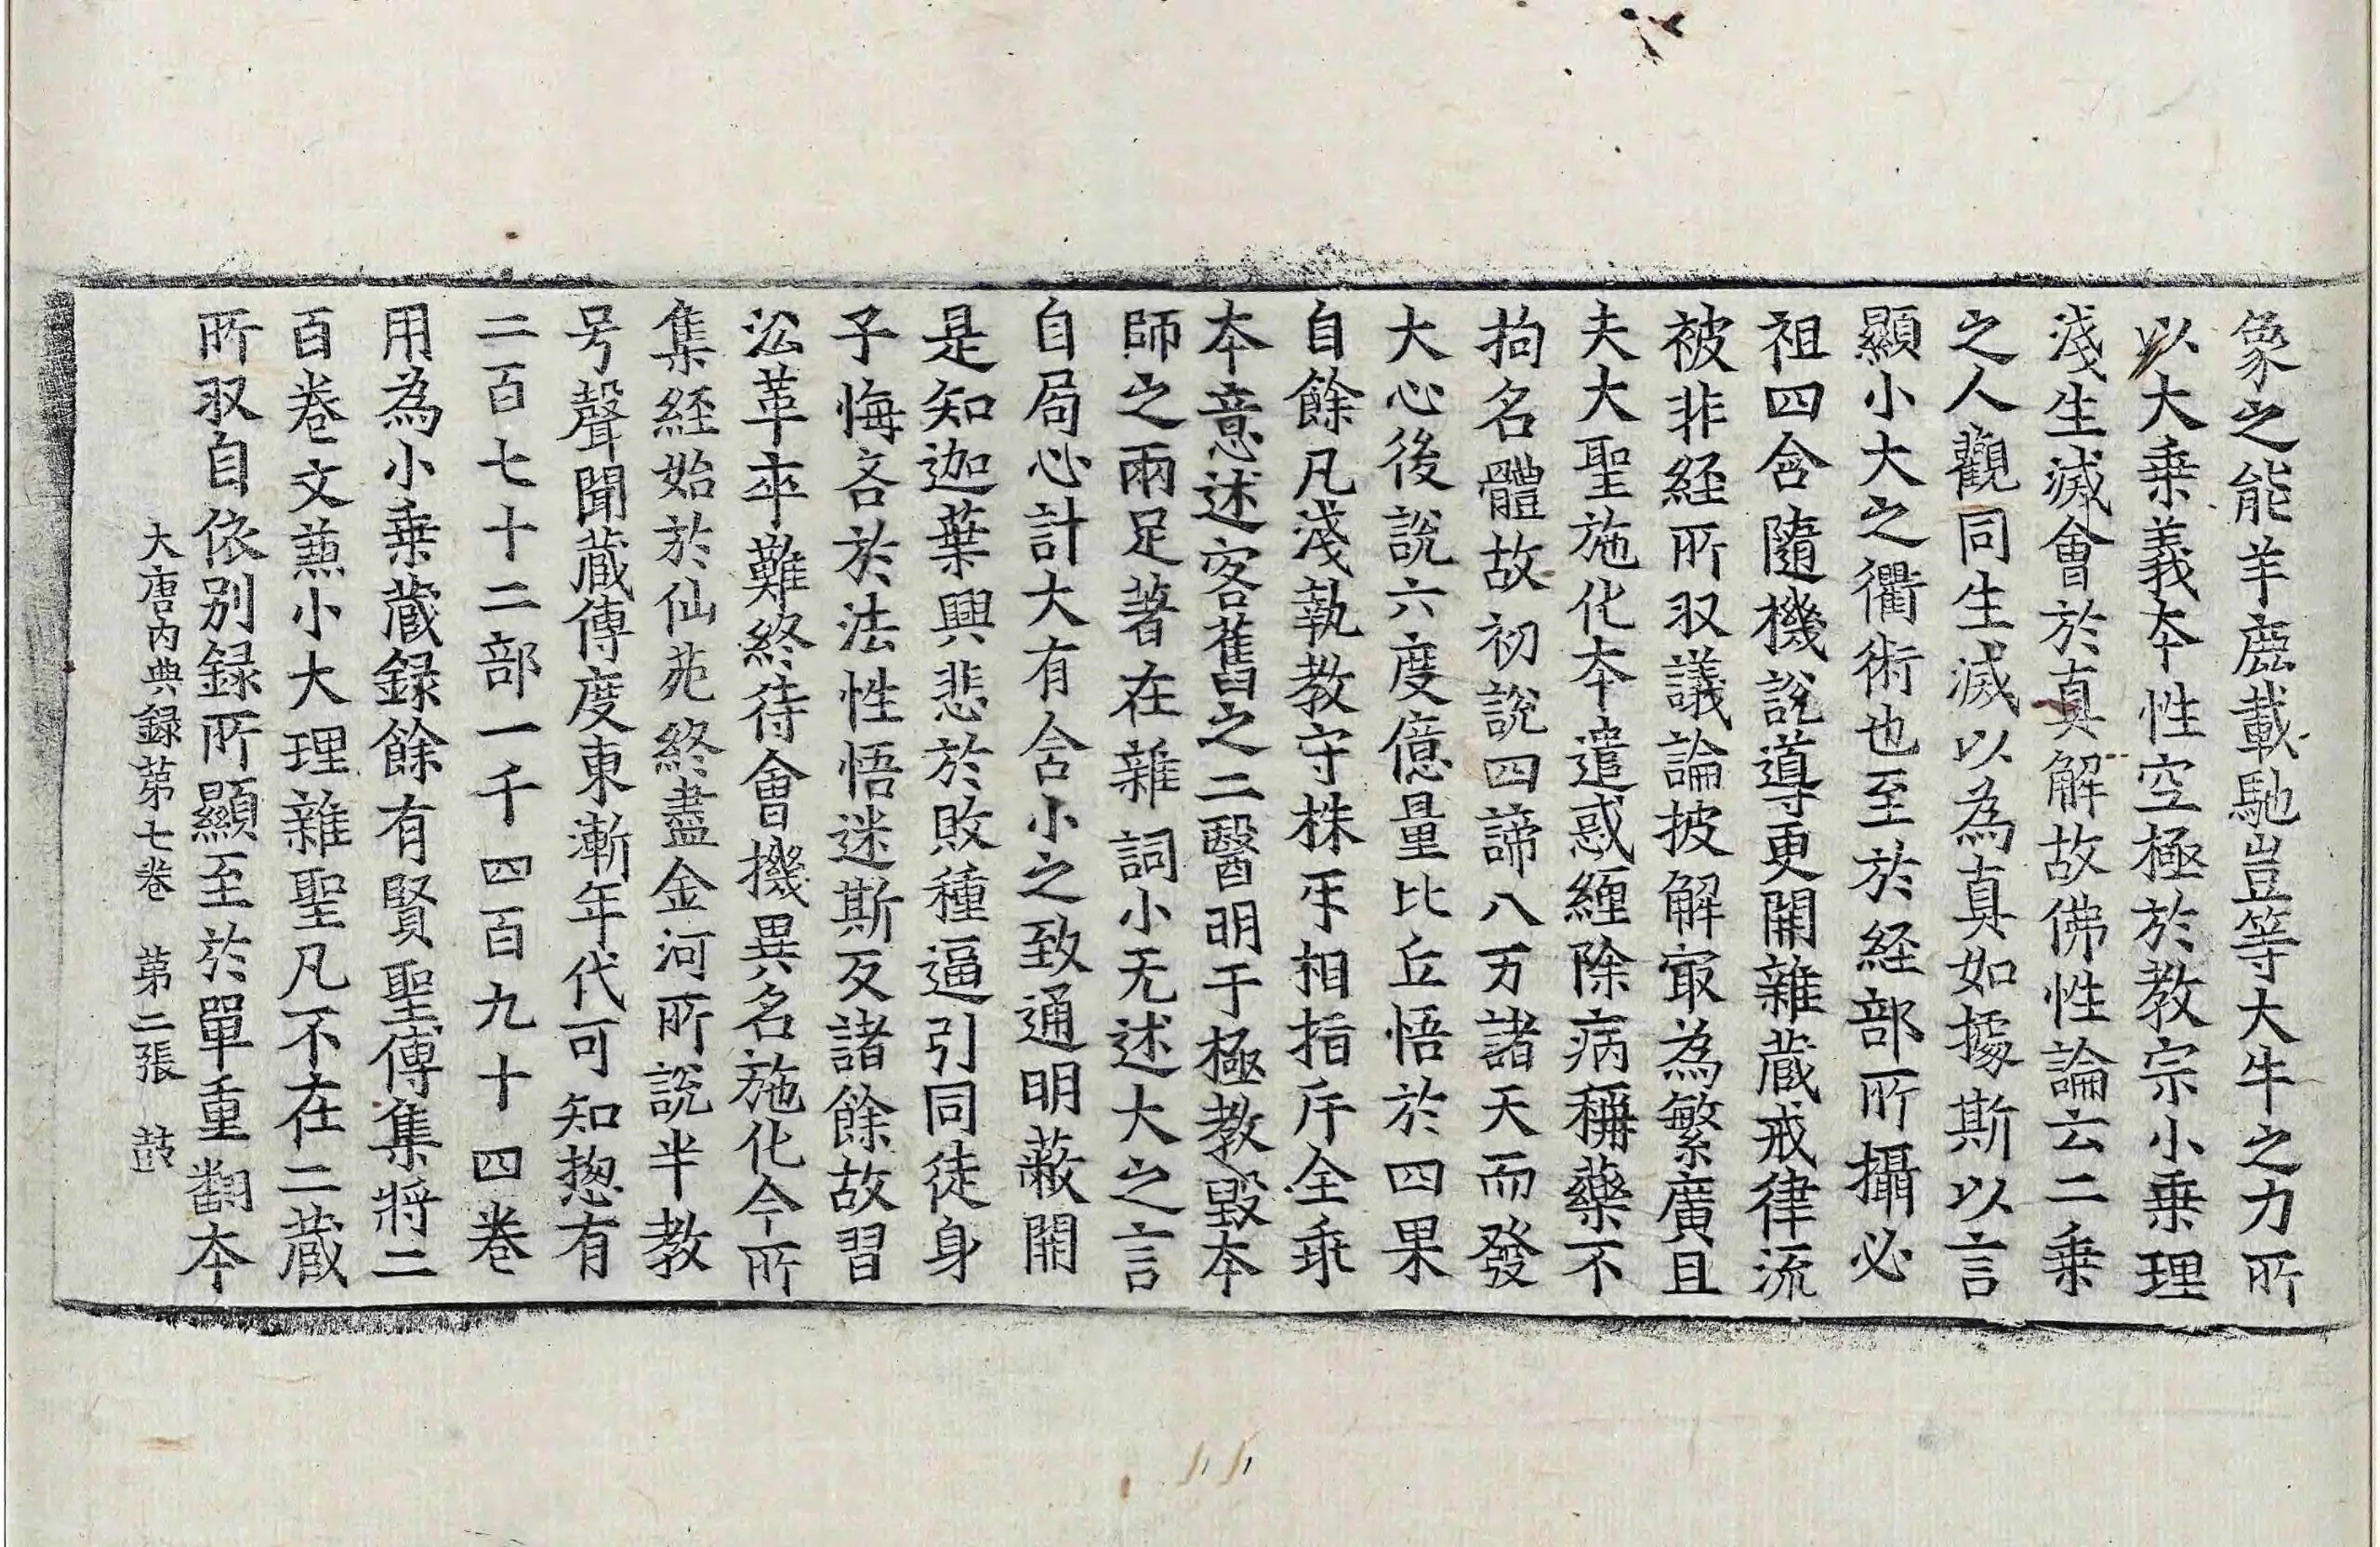 象之能羊鹿載馳豈等大牛之力所
以大乗義夲性空極於教宗小乗理
淺生滅會於真解故佛性論云二乗
之人觀同生滅以為真如據斯以言
顯小大之衢術也至於経部所攝必
祖四含隨機說導更開雜蔵戒律流
被非経所収議論披解冣為繁廣且
夫大聖施化夲遣惑纒除病稱藥不
拘名體故初說四諦八万諸天而發
大心後說六度億量比丘悟於四果
自餘凡淺執教守株㸦相指斥全乖
夲意述客舊之二醫明于極教毀夲
師之兩足著在雜詞小无述大之言
自局心計大有含小之致通明蔽開
是知迦葉興悲於敗種逼引同徒身
子悔吝於法性悟迷斯反諸餘故習
㳂革卒難終待會機異名施化今所
集経始於仙苑終盡金河所說半教
号聲聞蔵傳度東漸年代可知揔有
二百七十二部一千四百九十四巻
用為小乗蔵録餘有賢聖傳集將二
百巻文䔥小大理雜聖凡不在二蔵
所収自依別録所顯至於單重翻夲
大唐内典録第七巻　第二張　鼓